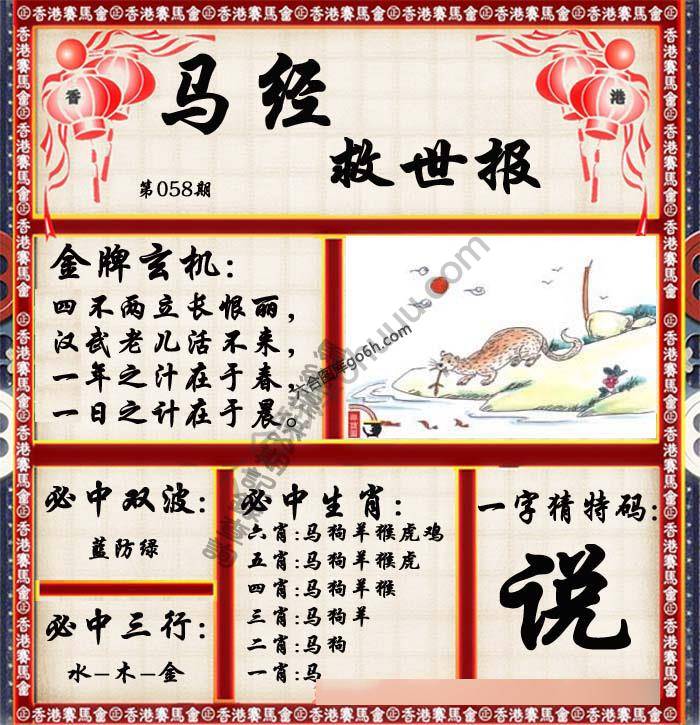 香港賽馬會
香
港
马经
救世报
第058期
金牌玄机:
四不两立长恨丽,
汉武老儿活不来,
一年之汁在于春,
一日之计在于晨。
六合图库go6h.com
必中双波:
蓝防绿
必中三行:
水-木-金
必中生肖:
六肖:马狗羊猴虎鸡
五肖:马狗羊猴虎
四肖:马狗羊猴
三肖:马狗羊
二肖:马狗
一肖:马
一字猜特码:
说